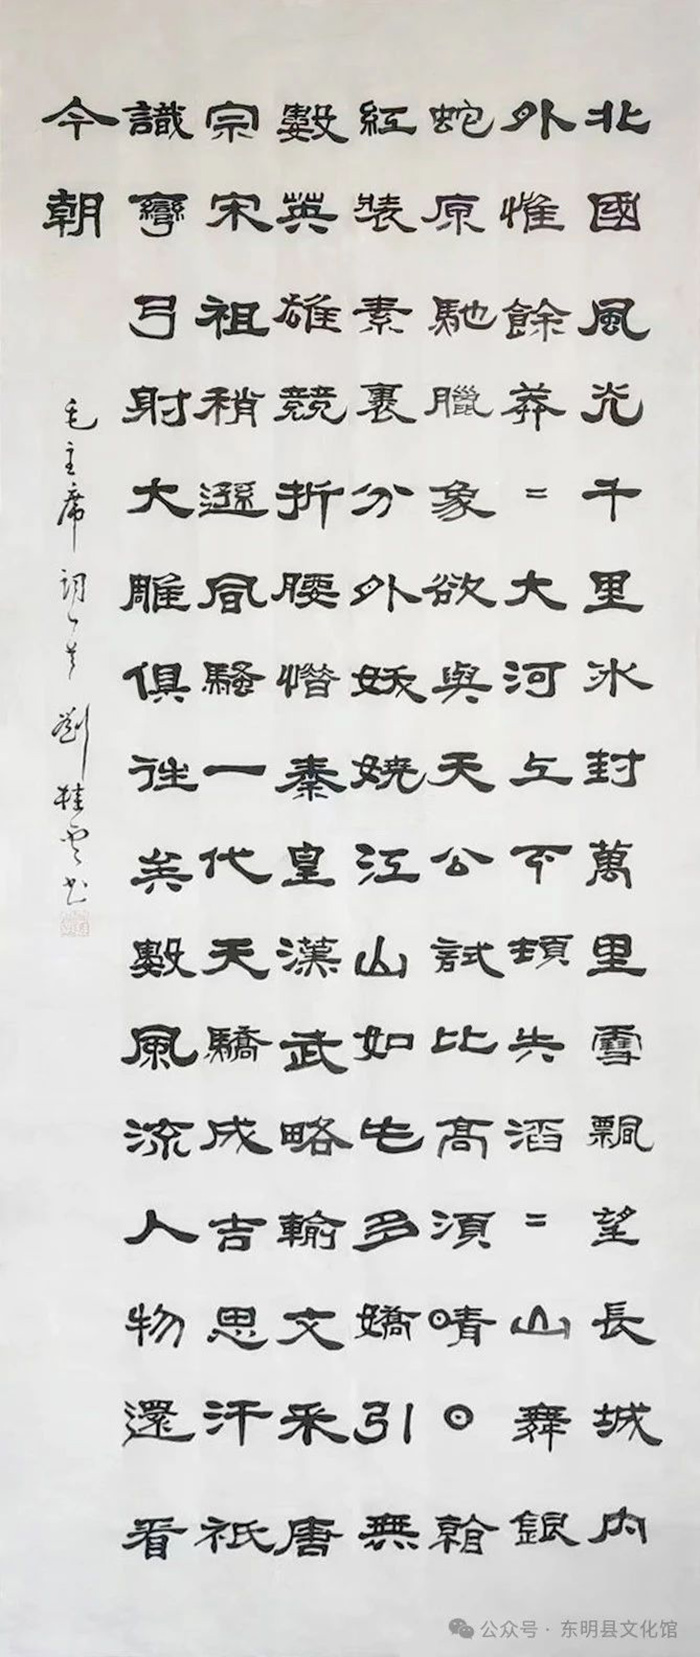 北國風光千里冰封萬里雪飄望長城内
外惟餘莽=大河上下頓失滔=山舞銀
蛇原馳臘象欲與天公試比高須晴⊙翰
紅裝素裹分外妖嬈江山如此多嬌引無
數英雄競折腰惜秦皇漢武略輸文采唐
宗宋祖稍遜風騷一代天驕成吉思汗祇
識彎弓射大雕俱往矣數風流人物還看
今朝
毛主席词一首 劉桂雲书
公众号·东明县文化馆